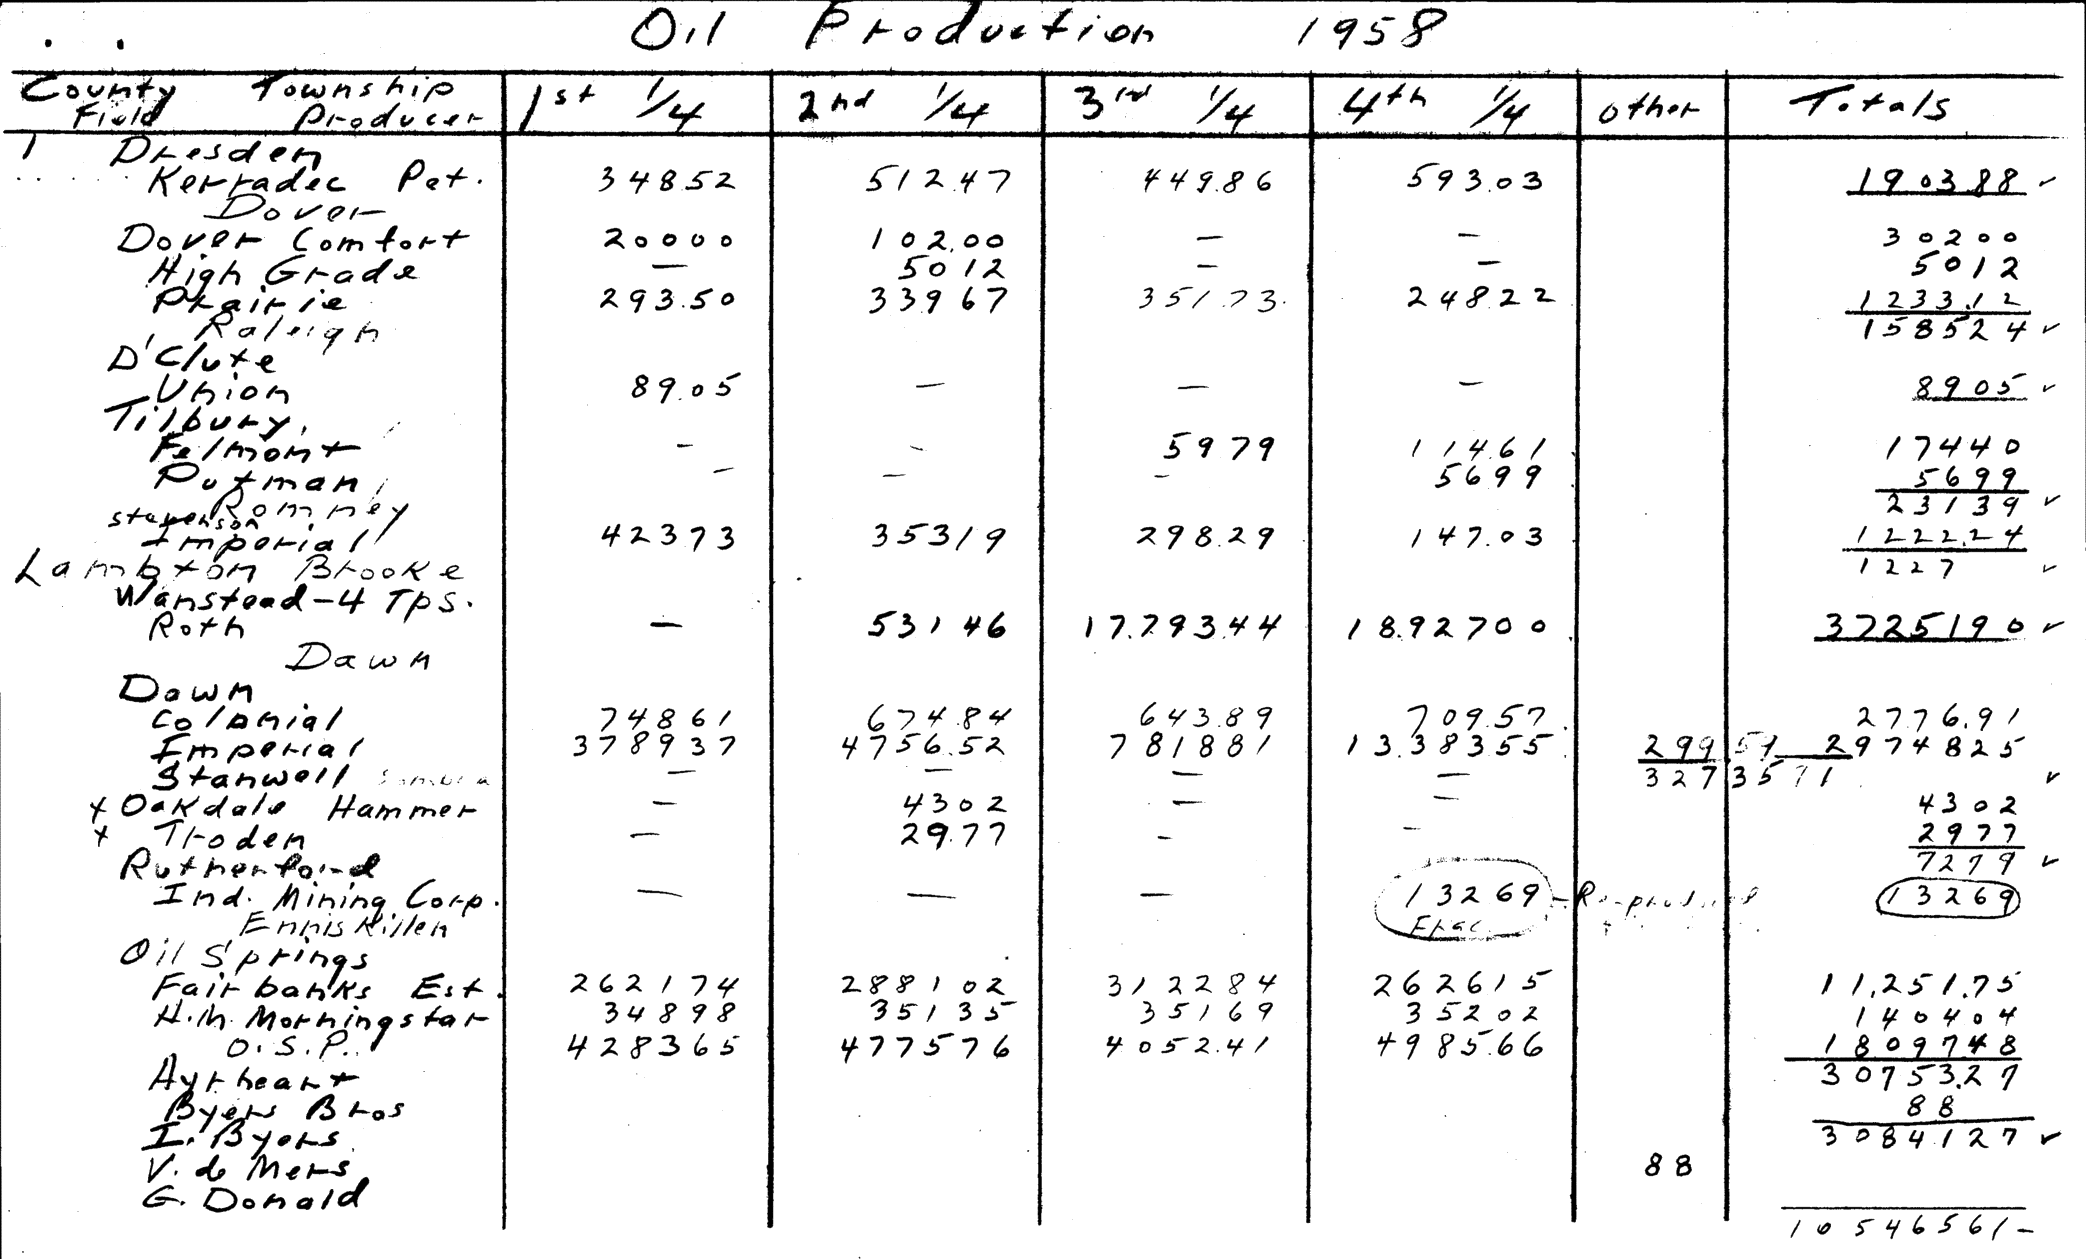 Oil Production 1958
County Township 1st 1/4 2nd 1/4 3rd 1/4 4th 1/4 other Totals
Field Producer
1 Dresden
Kerradec Pet. 34852 512.47 449.86 593.03 190388 ✓
Dover
Dover Comfort 20000 102.00 — — 30200
High Grade — 5012 — — 5012
Prairie 293.50 33967 351.73 24822 1233.12
Raleigh 158524 ✓
D'Clute
Union 89.05 — — — 8905 ✓
Tilbury
Felmont - - 5979 11461 17440
Putman - — - 5699 5699
Romney 23139 ✓
Stevenson
Imperial 42373 35319 298.29 147.03 1222.24
Lambton Brooke 1227 ✓
Wanstead-4 Tps.
Roth — 53146 17.793.44 18.92700 3725190 ✓
Dawn
Dawn
Colonial 74861 674.84 643.89 709.57 2776.91
Imperial 378937 4756.52 781881 13.38355 299 51 2974825
Stanwell Sombra — — — — 32735 71 ✓
x Oakdale Hammer — 4302 — — 4302
x Troden — 29.77 - — 2977
Rutherford 7279 ✓
Ind. Mining Corp. — — — 13269 - 13269
Enniskillen Frac.
Oil Springs
Fairbanks Est. 262174 288102 312284 262615 11,251.75
H.M. Morningstar 34898 35135 35169 35202 140404
O.S.P. 428365 477576 4052.41 4985.66 1809748
Ayrheart 30753.27
Byers Bros 88
I. Byers 3084127 ✓
V. de Mers 88
G. Donald
10546561-